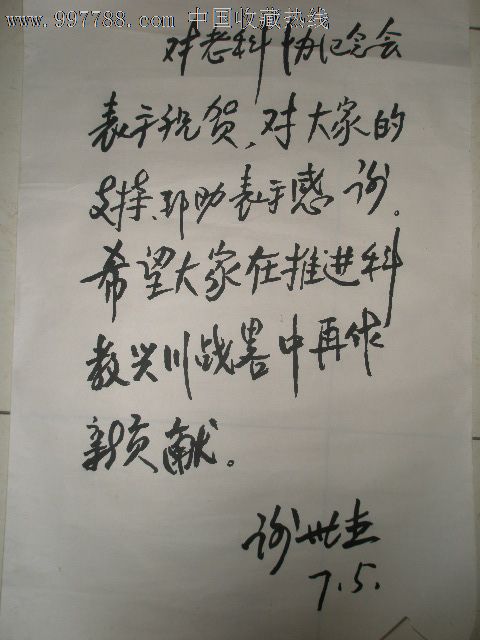 www.997788.com 中国收藏热线
对老科协纪念会
表示祝贺,对大家的
支持、帮助表示感谢。
希望大家在推进科
教兴川战略中再作
新贡献。
谢世杰
7.5.